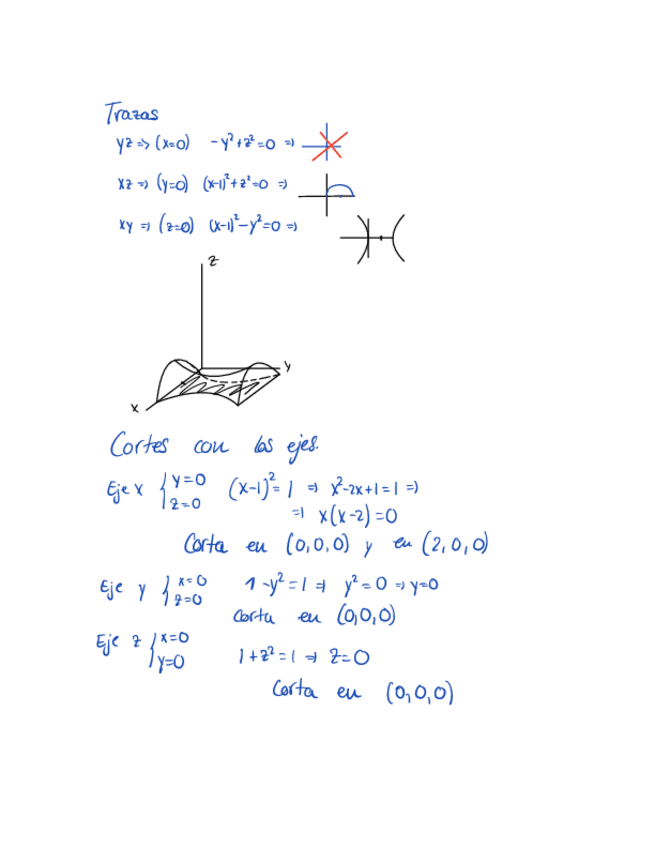 Trazas
yz => (x=0) -y²+z²=0 =>
xz => (y=0) (x-1)²+z²=0 =>
xy => (z=0) (x-1)²-y²=0 =>
z
y
x
Cortes con los ejes.
Eje x { y=0 z=0 (x-1)²=1 => x²-2x+1=1 =>
=> x(x-2)=0
Corta en (0,0,0) y en (2,0,0)
Eje y { x=0 z=0 1-y²=1 => y²=0 => y=0
Corta en (0,0,0)
Eje z { x=0 y=0 1+z²=1 => z=0
Corta en (0,0,0)